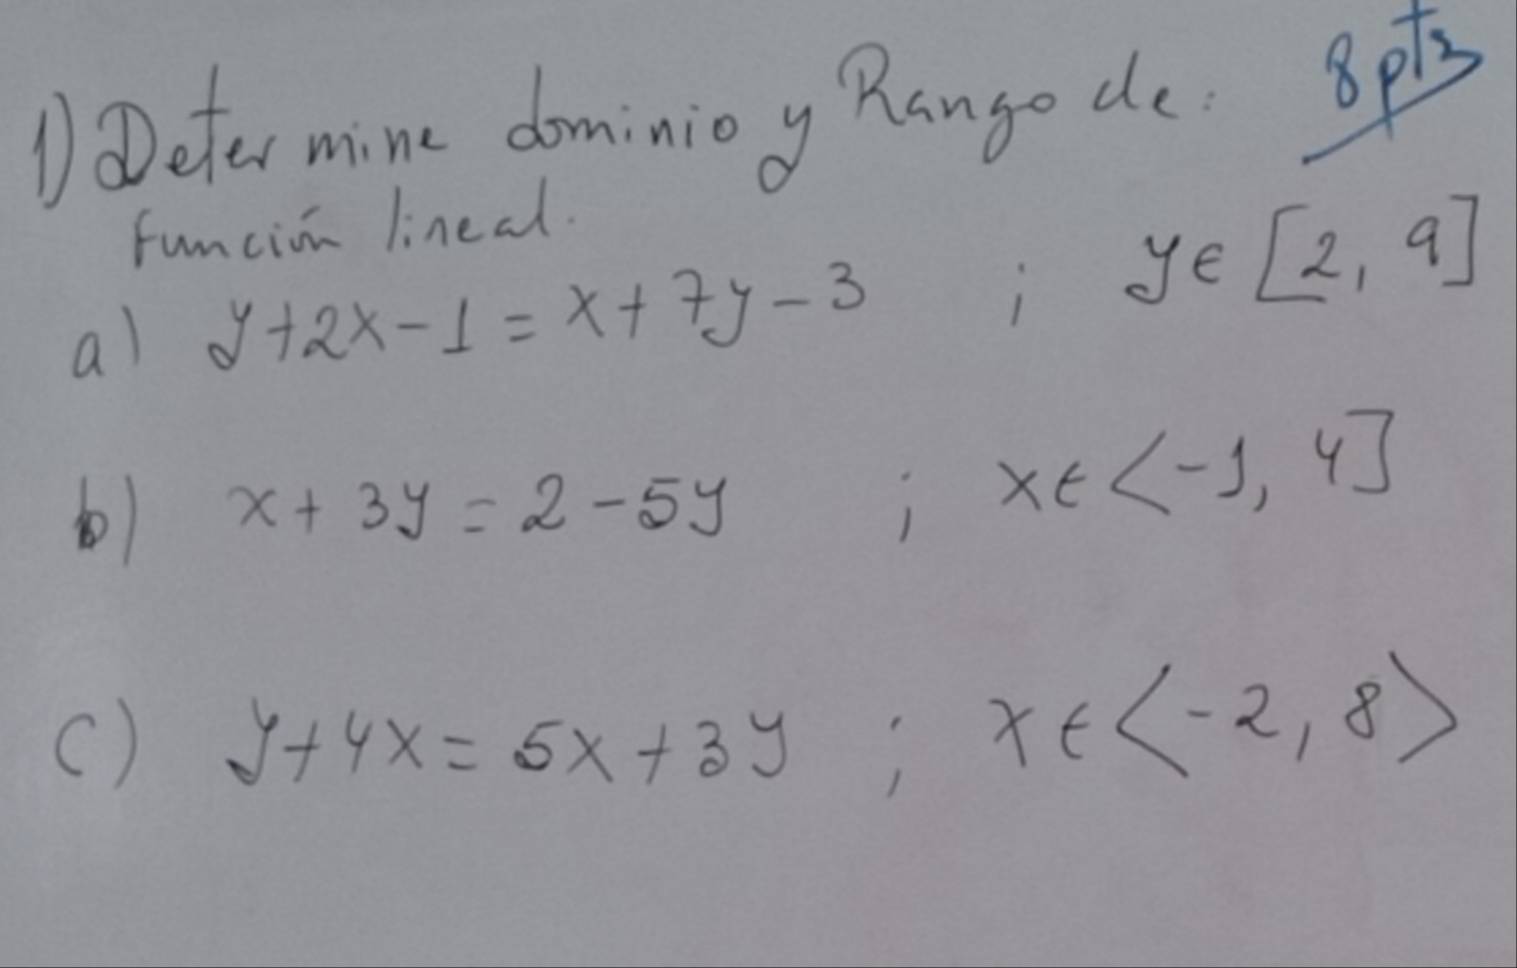 1) Determine dominio y Rango de: 8 pts
función lineal.
a) y+2x-1 = x+7y-3 ; y∈[2, 9]
b) x+3y = 2-5y ; x∈<-1, 4]
c) y+4x = 5x+3y ; x∈<-2, 8>